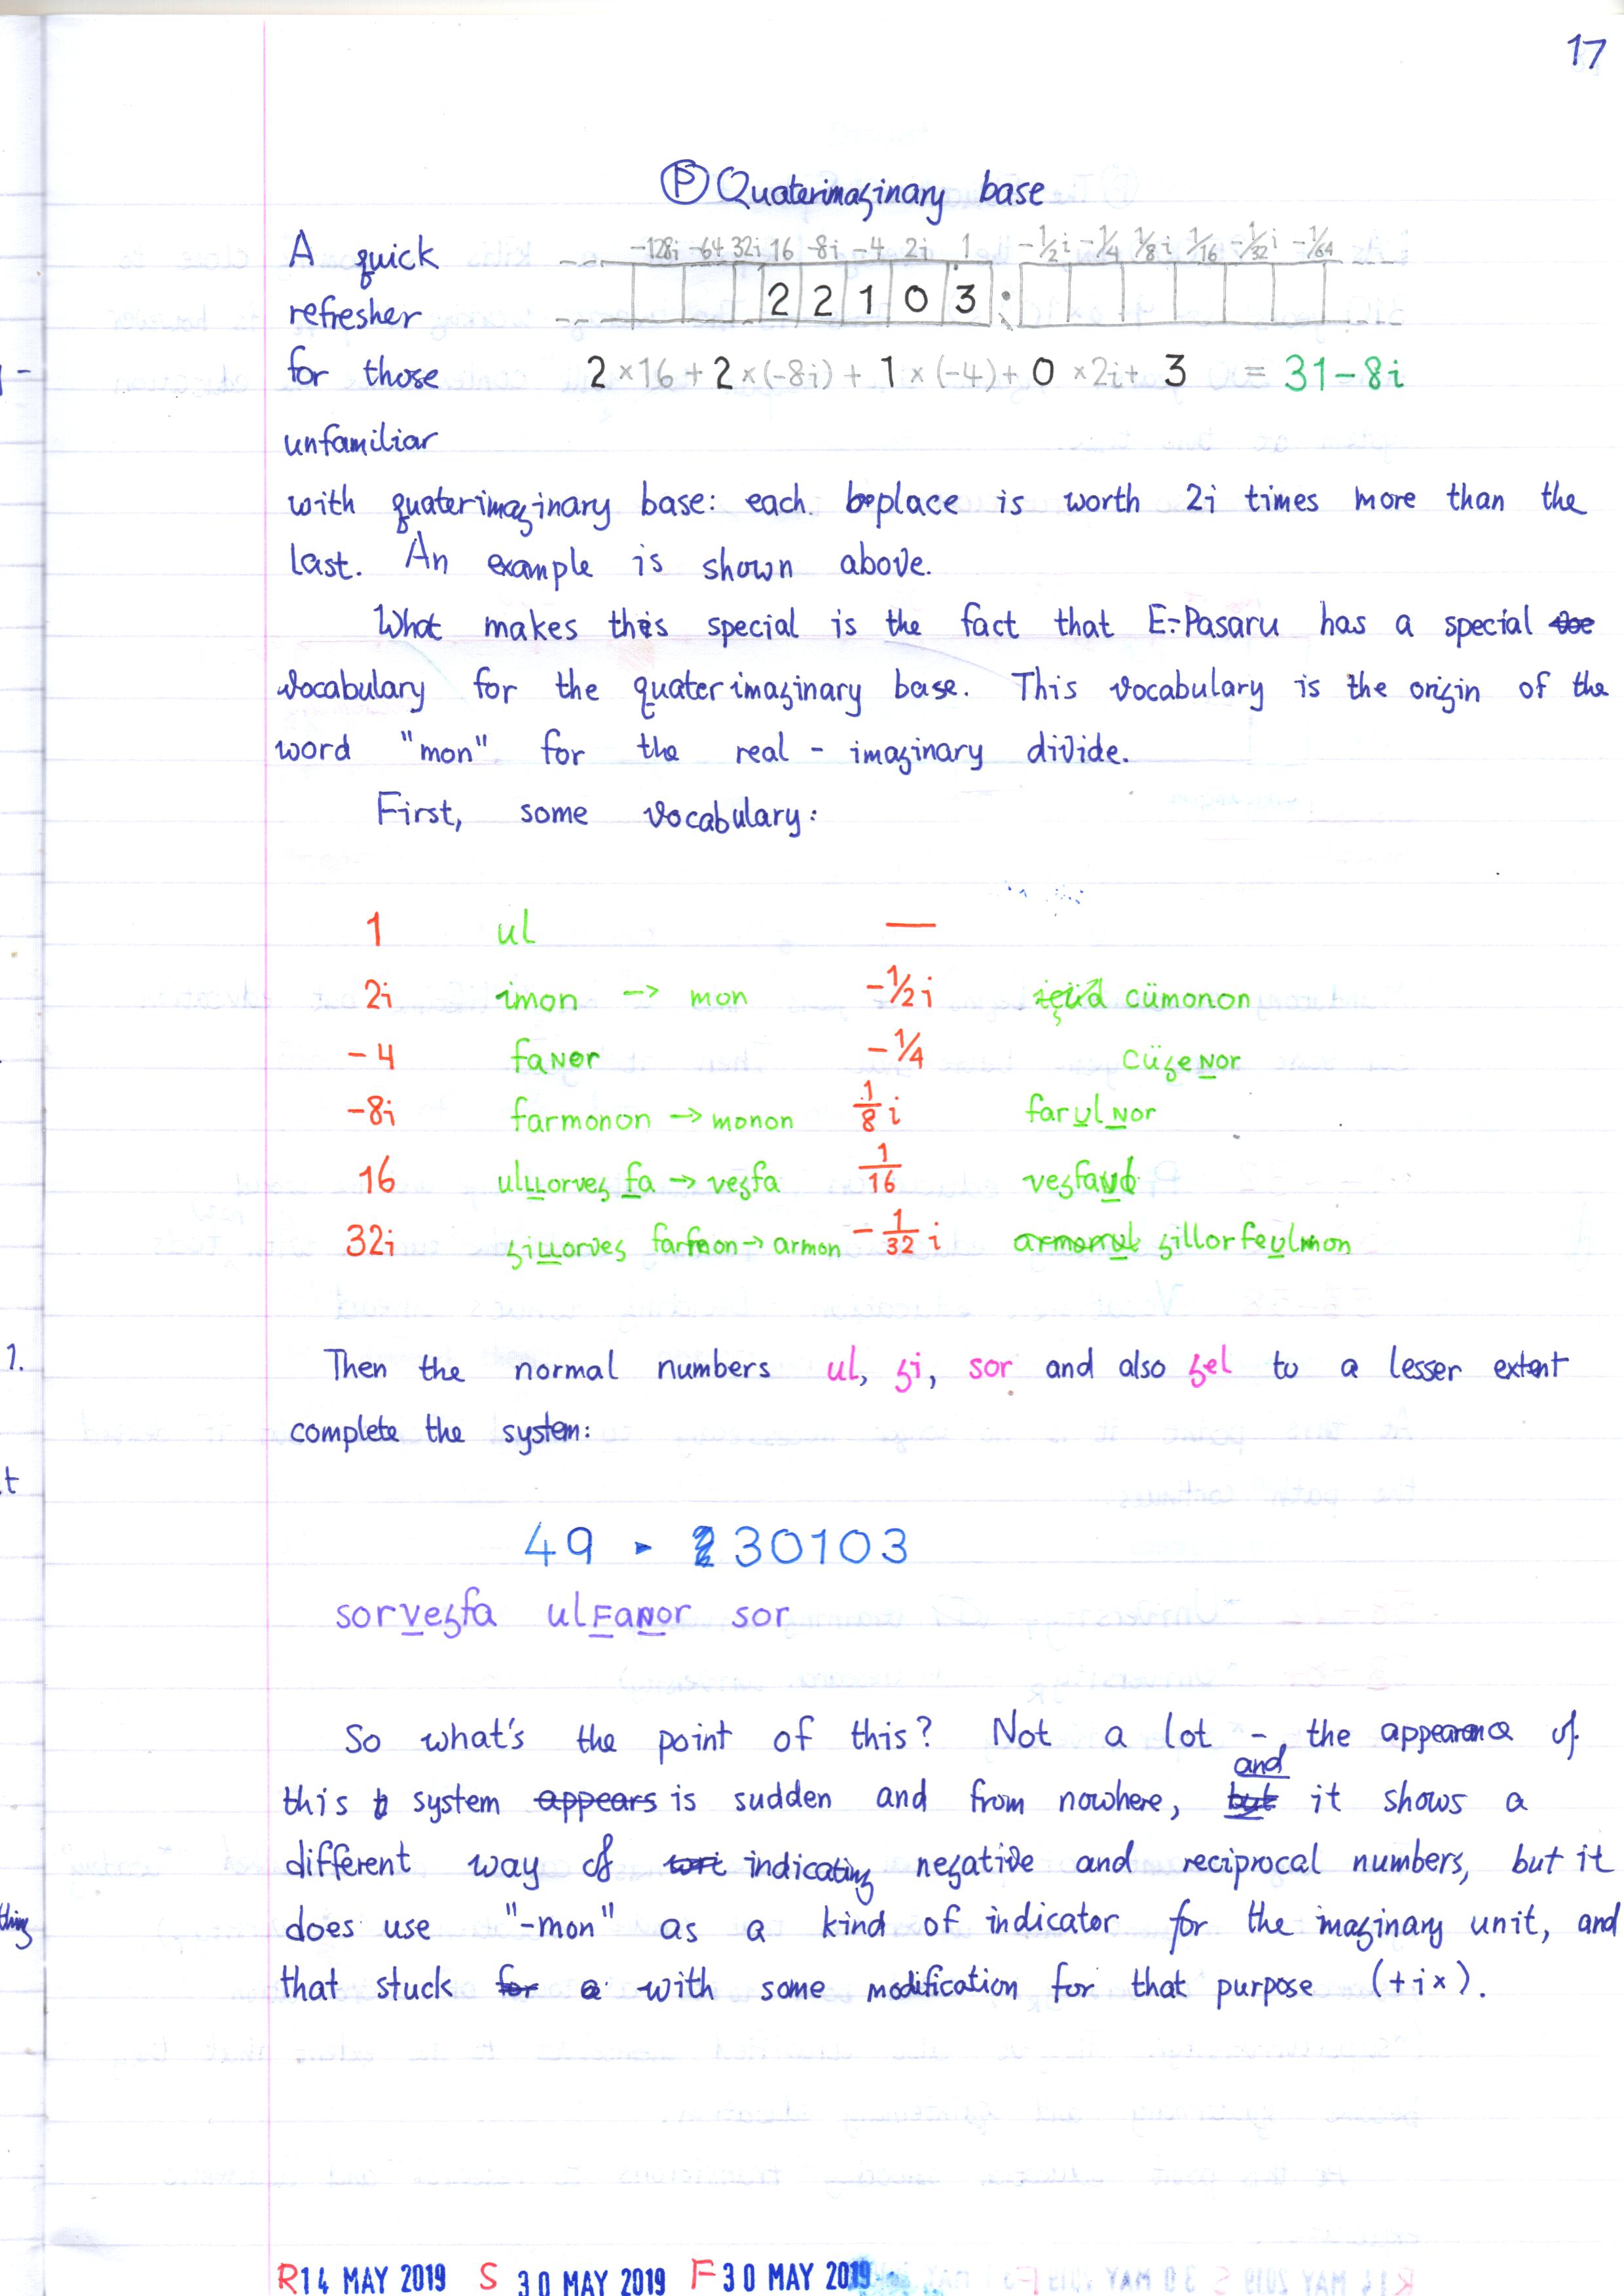 17
Ⓟ Quaterimaginary base
A quick
-128i -64 32i 16 -8i -4 2i 1 -½i -¼ ⅛i 1/16 -1/32 i -1/64
refresher
2 2 1 0 3 :
for those
2 × 16 + 2 × (-8i) + 1 × (-4) + 0 × 2i + 3 = 31 - 8i
unfamiliar
with quaterimaginary base: each place is worth 2i times more than the
last. An example is shown above.
What makes this special is the fact that E:-Pasaru has a special
vocabulary for the quaterimaginary base. This vocabulary is the origin of the
word "mon" for the real - imaginary divide.
First, some vocabulary:
1 ul —
2i imon -> mon -½i cümonon
-4 faNor -¼ cügeNor
-8i farmonon -> monon 1/8 i farulNor
16 ulllorveg fa -> vegfa 1/16
32i gillorveg farmon -> armon -1/32 i gillorfeulmon
Then the normal numbers ul, gi, sor and also gel to a lesser extent
complete the system:
49 ▸ 30103
sorvegfa ulFaNor sor
So what's the point of this? Not a lot -, the appearance of
this system appears is sudden and from nowhere, but and it shows a
different way of indicating negative and reciprocal numbers, but it
does use "-mon" as a kind of indicator for the imaginary unit, and
that stuck for a with some modification for that purpose (+i×).
R14 MAY 2019 S 30 MAY 2019 F30 MAY 2019